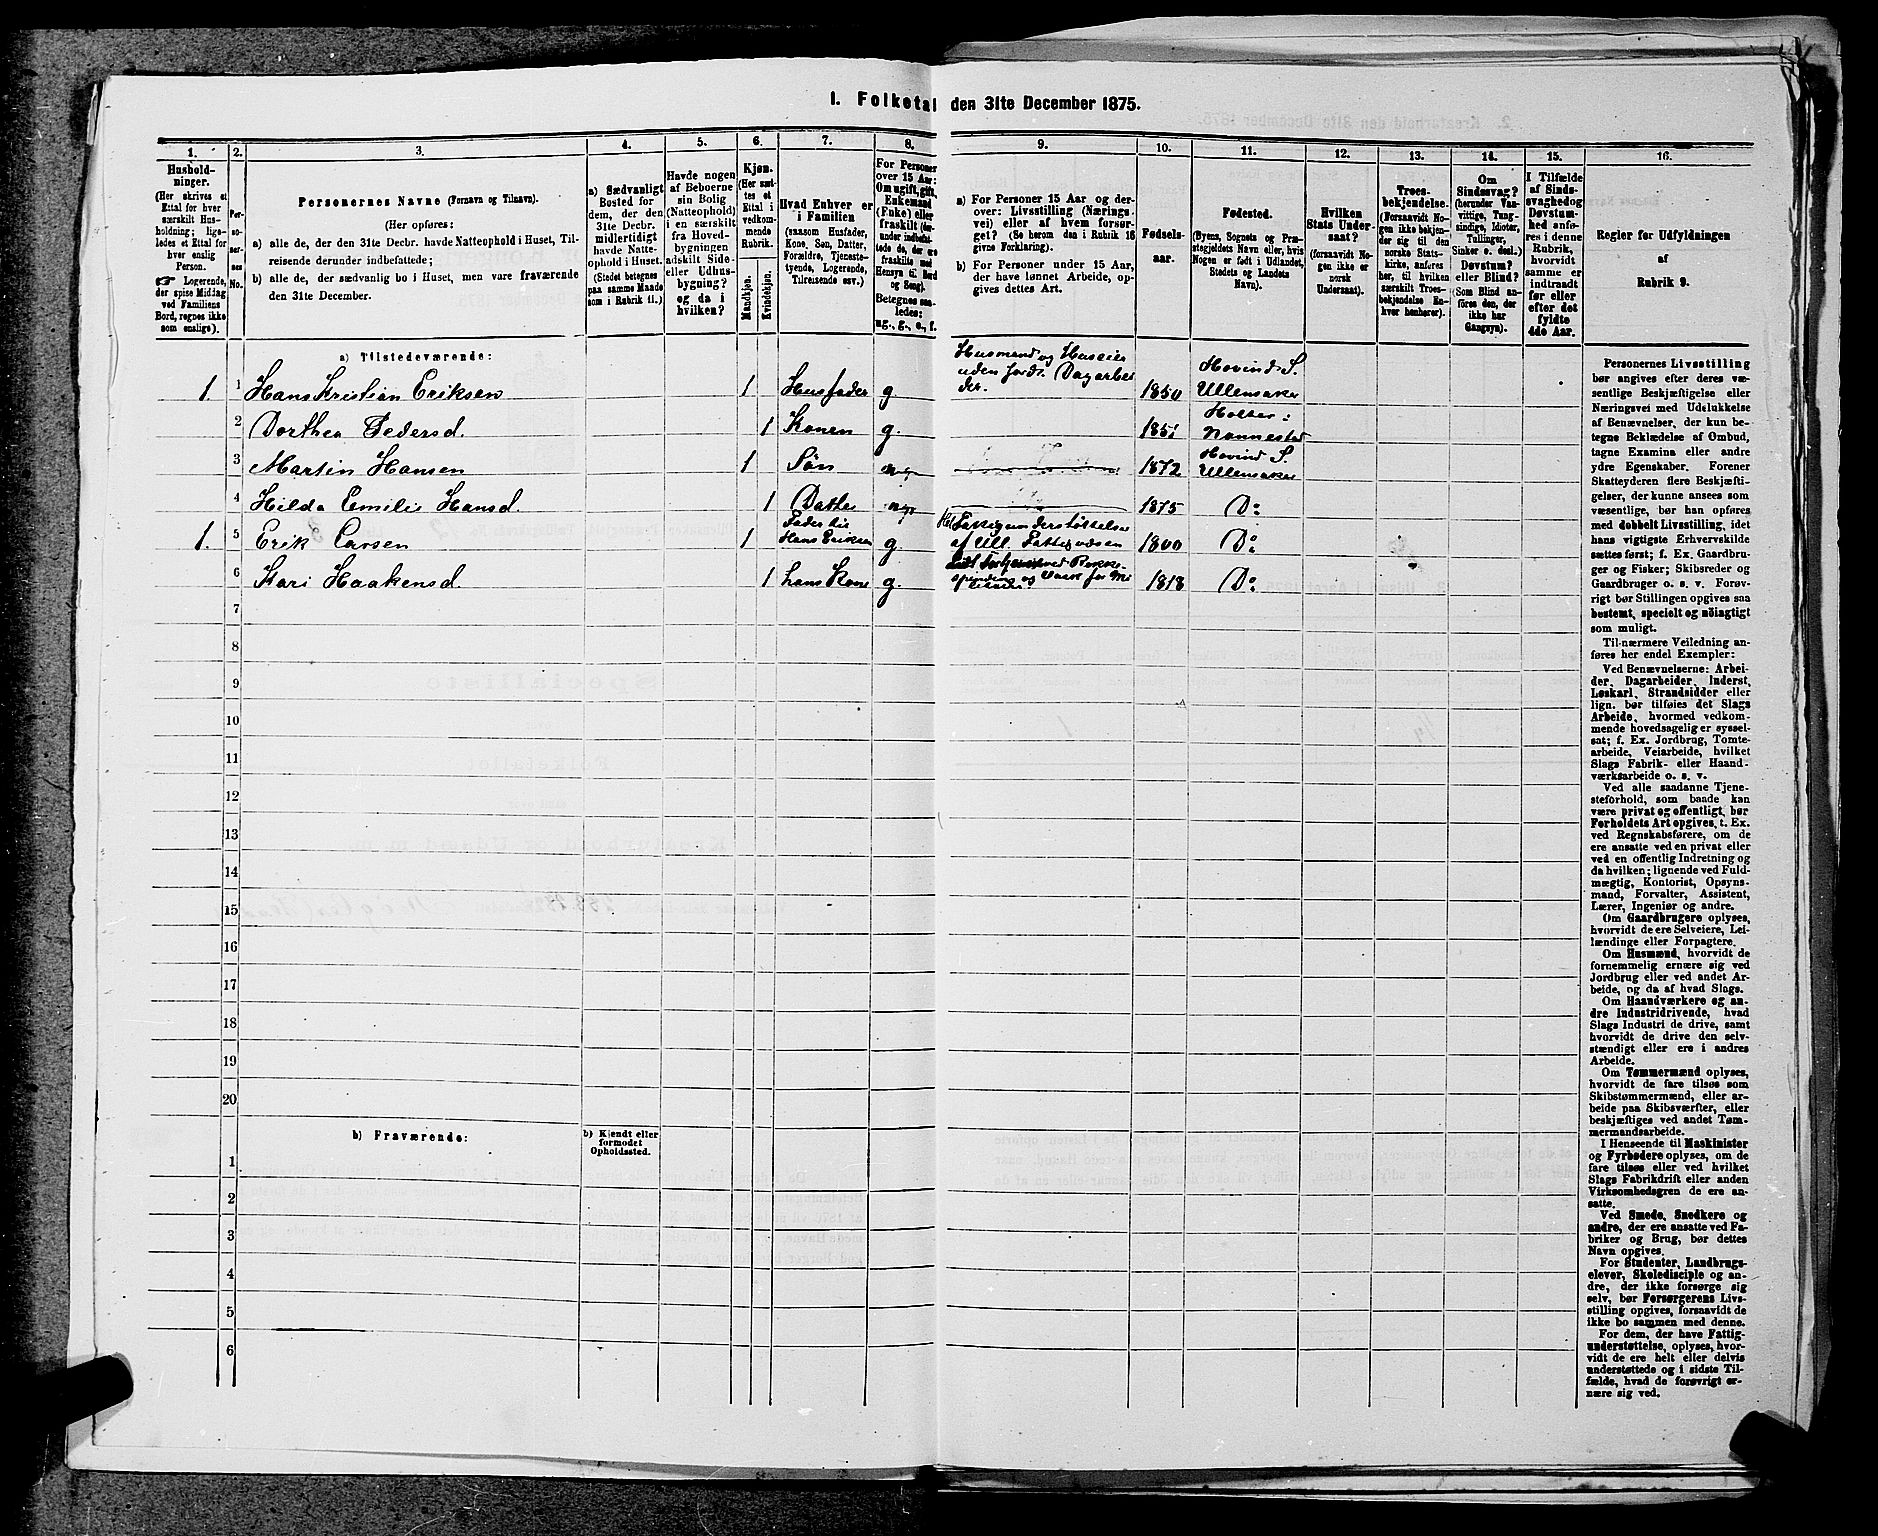 I. Folketal den 31te December 1875.
1.
Husholdninger.
(Her skrives et
Ettal for hver
særskilt Husholdning;
ligeledes et Ettal for
hver enslig
Person.
☞ Logerende,
der spise Middag
ved Familiens
Bord, regnes ikke
som enslige).
2.
Personernes
No.
3.
Personernes Navne (Fornavn og Tilnavn).
(Her opføres:
a) alle de, der den 31te Decbr. havde Natteophold i Huset, Tilreisende derunder indbefattede;
b) alle de, der sædvanlig bo i Huset, men vare fraværende
den 31te December.
4.
a) Sædvanligt
Bosted for
dem, der den
31te Decbr.
midlertidigt
havde Natteophold i Huset.
(Stedet betegnes
paa samme Maade
som i Rubrik 11.)
5.
Havde nogen
af Beboerne
sin Bolig
(Natteophold)
i en særskilt
fra Hovedbygningen
adskilt Side-
eller Udhusbygning?
og da i
hvilken?
6.
Kjøn.
(Her sættes et
Ettal i
vedkommende
Rubrik.
Mandkjøn.
Kvindekjøn.
7.
Hvad Enhver er
i Familien
(saasom Husfader,
Kone, Søn, Datter,
Forældre, Tjenestetyende, Logerende,
Tilreisende osv.)
8.
For Personer
over 15 Aar:
Om ugift, gift,
Enkemand
(Enke) eller
fraskilt
Betegnes saaledes:
ug., g., e., f.
9.
a) For Personer 15 Aar og derover: Livsstilling (Næringsvei) eller af hvem forsørget? (Se herom den i Rubrik 16
givne Forklaring).
b) For Personer under 15 Aar,
der have lønnet Arbeide, opgives dettes Art.
10.
Fødselsaar.
11.
Fødested.
(Byens, Sognets og Præstegjeldets Navn eller, hvis
Nogen er født i Udlandet,
Stedets og Landets
Navn).
12.
Hvilken
Stats Undersaat?
(forsaavidt Nogen ikke er
norsk
Undersaat).
13.
Troesbekjendelse.
(Forsaavidt Nogen ikke bekjender sig til den
norske Statskirke, anføres
her, til hvilken
særskilt Troesbekjendelse Enhver henhører).
14.
Om
Sindssvag?
(herunder Vanvittige, Tungsindige, Idioter,
Tullinger,
Sinker o. desl.).
Døvstum?
eller Blind?
(Som Blind anføres den, der
ikke har
Gangsyn).
15.
I Tilfælde
af Sindssvaghed og
Døvstumhed anføres i denne
Rubrik,
hvorvidt
samme er
indtraadt
før eller
efter det
fyldte
4de Aar.
16.
Regler for Udfyldningen
af
Rubrik 9.
a) Tilstedeværende:
1 1 Hans Kristian Eriksen 1 Husfader g. Husmand og Huseier uden Jord. Dagarbeider. 1850 Hovind S. Ullensaker
2 Dorthea Pedersd. 1 Konen g. 1851 Holter: Nannestad
3 Martin Hansen 1 Søn 1872 Hovind S. Ullensaker
4 Hilda Emilie Hansd. 1 Datter 1875 Do
1. 5 Erik Larsen 1 Fader til Hans Eriksen g. Fattigunderstøttelse af Ull. Fattigvæsen 1800 Do
6 Kari Haakensd. 1 hans Kone g. 1818 Do
7
8
9
10
11
12
13
14
15
16
17
18
19
20
b) Fraværende:
b) Kjendt eller
formodet
Opholdssted.
1
2
3
4
5
6
Personernes Livsstilling
bør angives efter deres væsentlige Beskjæftigelse eller
Næringsvei med Udelukkelse
af Benævnelser, der kun betegne Beklædelse af Ombud,
tagne Examina eller andre
ydre Egenskaber. Forener
Skatteyderen flere Beskjæftigelser, der kunne ansees som
væsentlige, bør han opføres
med dobbelt Livsstilling, idet
hans vigtigste Erhvervskilde
sættes først; f. Ex. Gaardbruger og Fisker; Skibsreder og
Gaardbruger o. s. v. Forøvrigt bør Stillingen opgives saa
bestemt, specielt og nøiagtigt
som muligt.
Til nærmere Veiledning anføres her endel Exempler:
Ved Benævnelserne: Arbeider, Dagarbeider, Inderst,
Løskarl, Strandsidder eller
lign. bør tilføies det Slags
Arbeide, hvormed vedkommende hovedsagelig er sysselsat; f. Ex. Jordbrug, Tomtearbeide, Veiarbeide, hvilket
Slags Fabrik- eller Haandværksarbeide o. s. v.
Ved alle saadanne Tjenesteforhold, som baade kan
være privat og offentligt, bør
Forholdets Art opgives, t. Ex.
ved Regnskabsførere, om de
ere ansatte ved en privat eller
ved en offentlig Indretning og
da hvilken; lignende ved Fuldmægtig, Kontorist, Opsynsmand, Forvalter, Assistent,
Lærer, Ingeniør og andre.
Om Gaardbrugere oplyses,
hvorvidt de ere Selveiere, Leilændinge eller Forpagtere.
Om Husmænd, hvorvidt de
fornemmelig ernære sig ved
Jordbrug eller ved andet Arbeide, og da af hvad Slags.
Om Haandværkere og andre Industridrivende, hvad
Slags Industri de drive, samt
hvorvidt de drive den selvstændigt eller ere i andres
Arbeide.
Om Tømmermænd oplyses,
hvorvidt de fare tilsøs som
Skibstømmermænd, eller arbeide paa Skibsværfter, eller
beskjæftiges ved andet Tømmermandsarbeide.
I Henseende til Maskinister
og Fyrbødere oplyses, om de
fare tilsøs eller ved hvilket
Slags Fabrikdrift eller anden
Virksomhedsgren de ere ansatte.
Ved Smede, Snedkere og
andre, der ere ansatte ved Fabriker og Brug, bør dettes
Navn opgives.
For Studenter, Landbrugselever, Skoledisciple og andre, der ikke forsørge sig
selv, bør Forsørgerens Livsstilling opgives, forsaavidt de
ikke bo sammen med denne.
For dem, der have Fattigunderstøttelse, oplyses, hvorvidt de ere helt eller delvis
understøttede og i sidste Tilfælde, hvad de forøvrigt ernære sig ved.